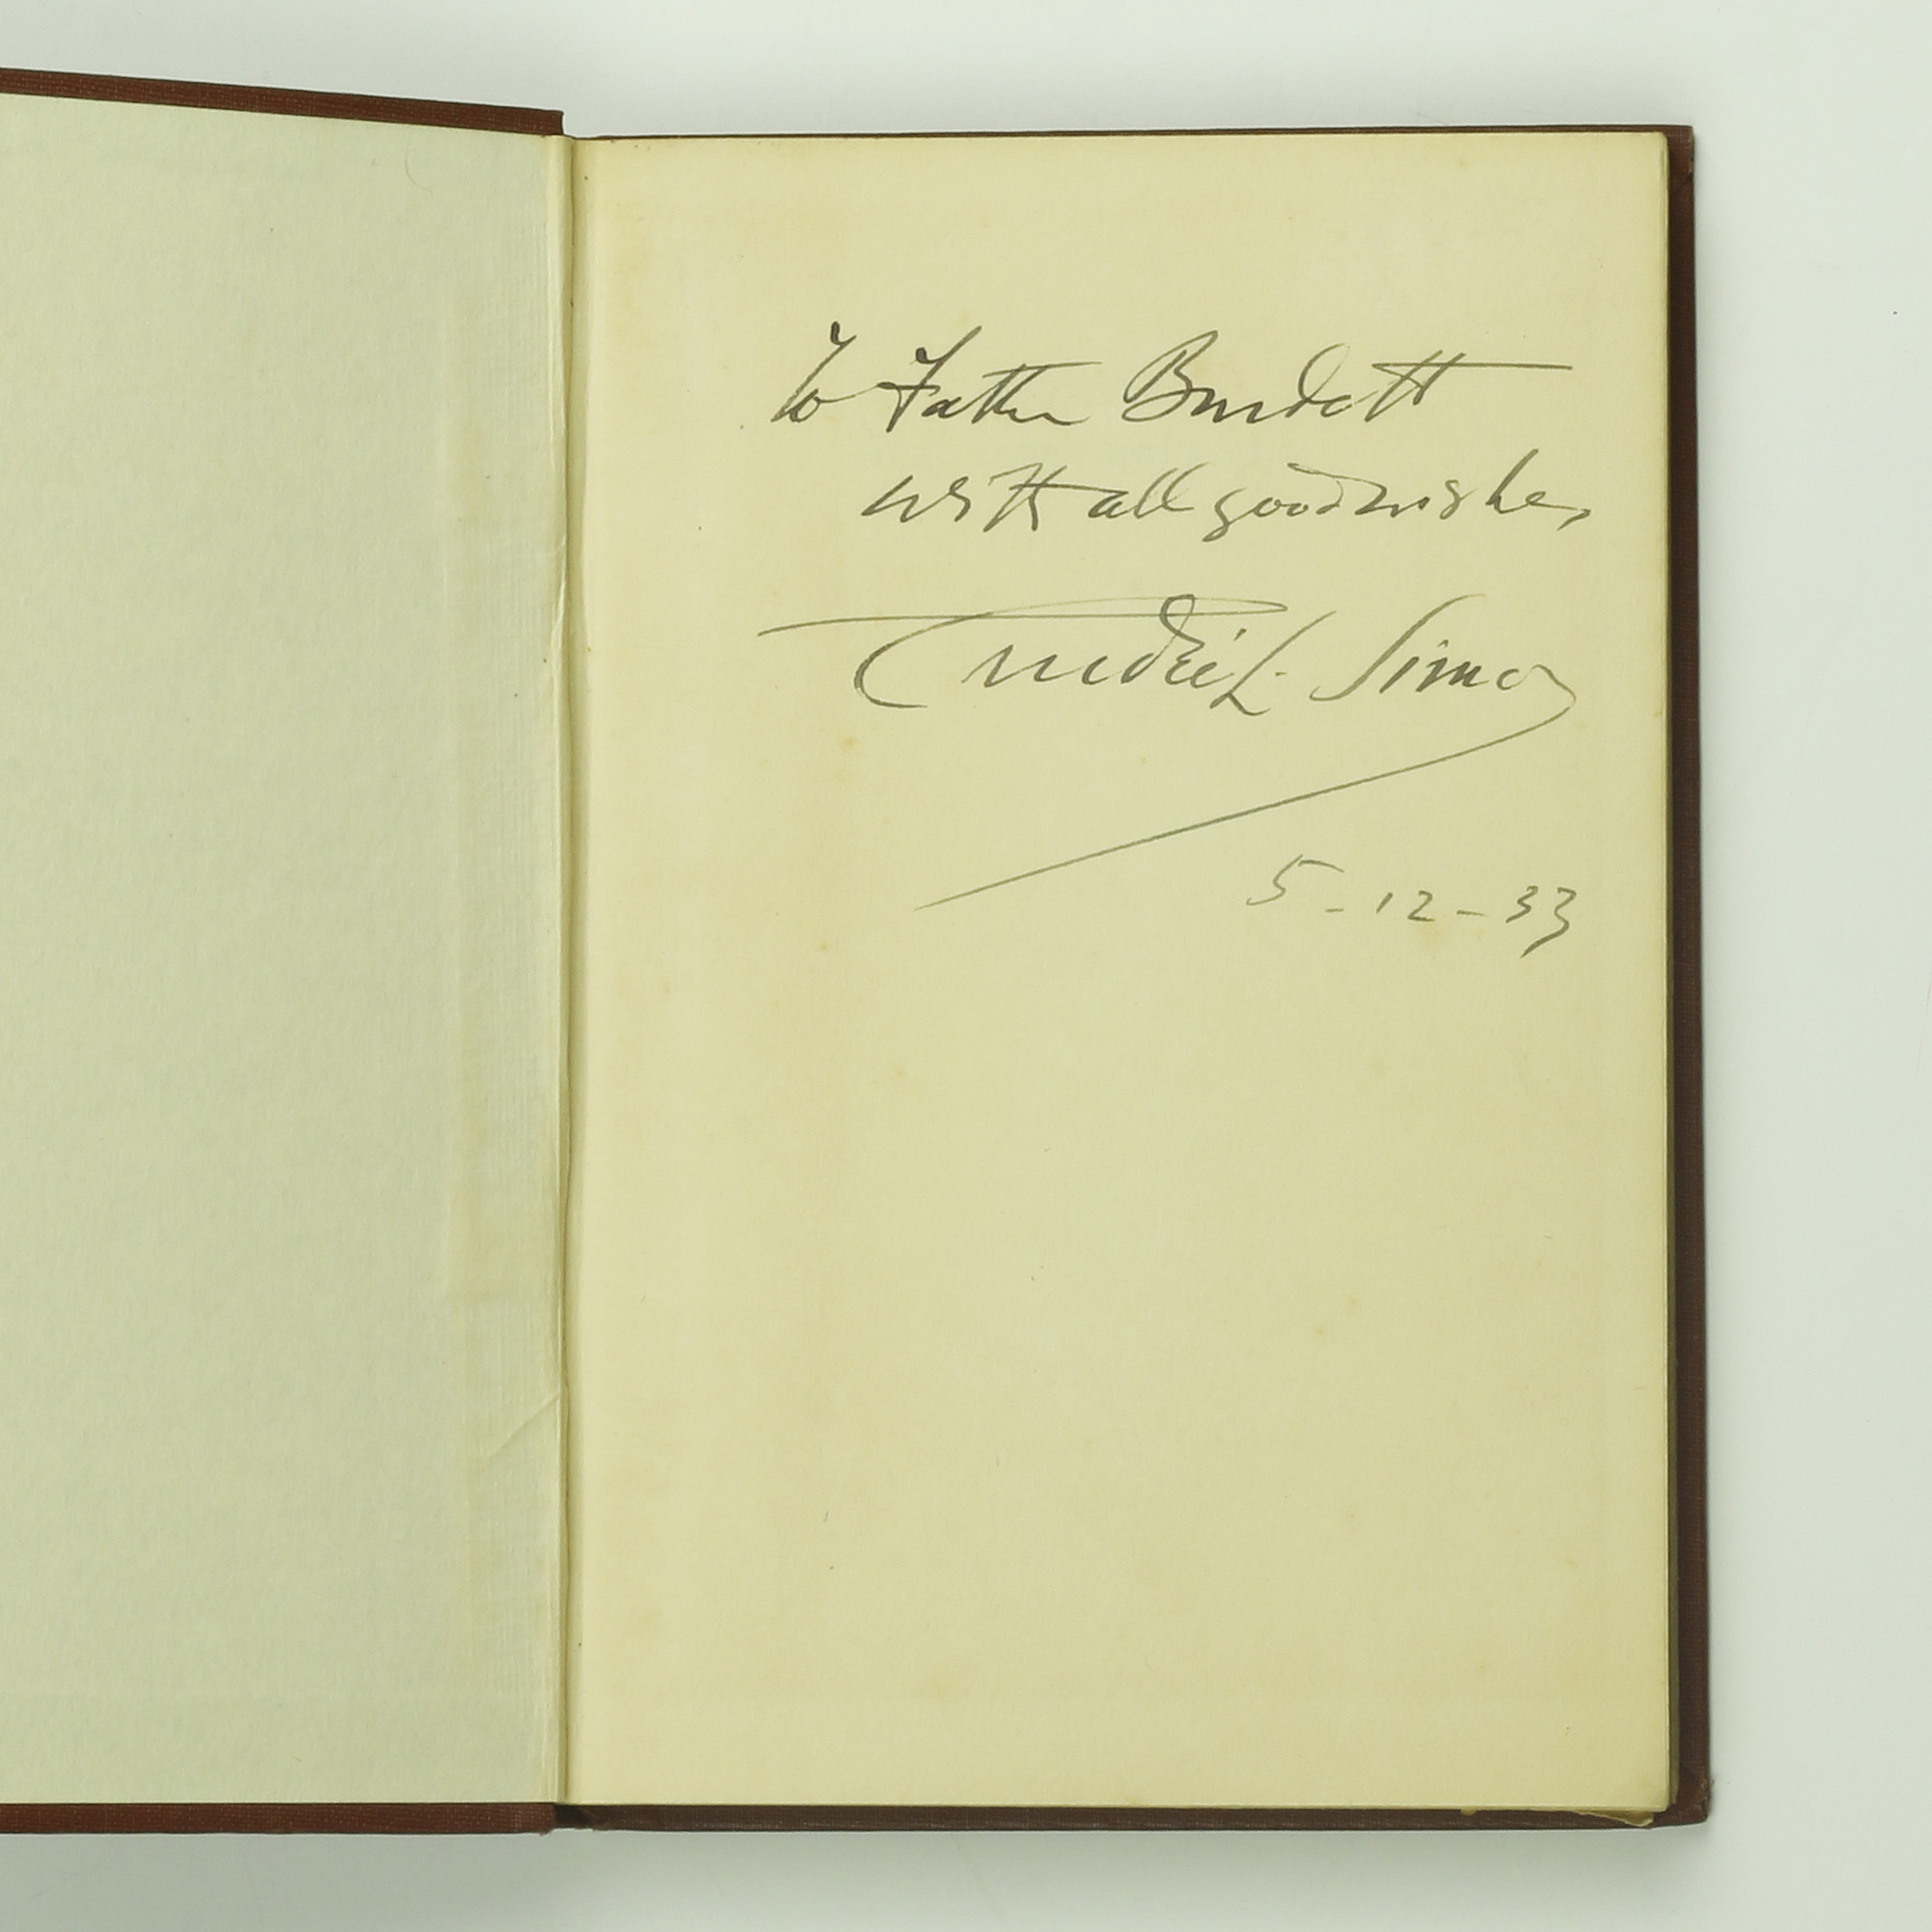 To Father Burdett
with all good wishes
André L. Simon
5-12-33